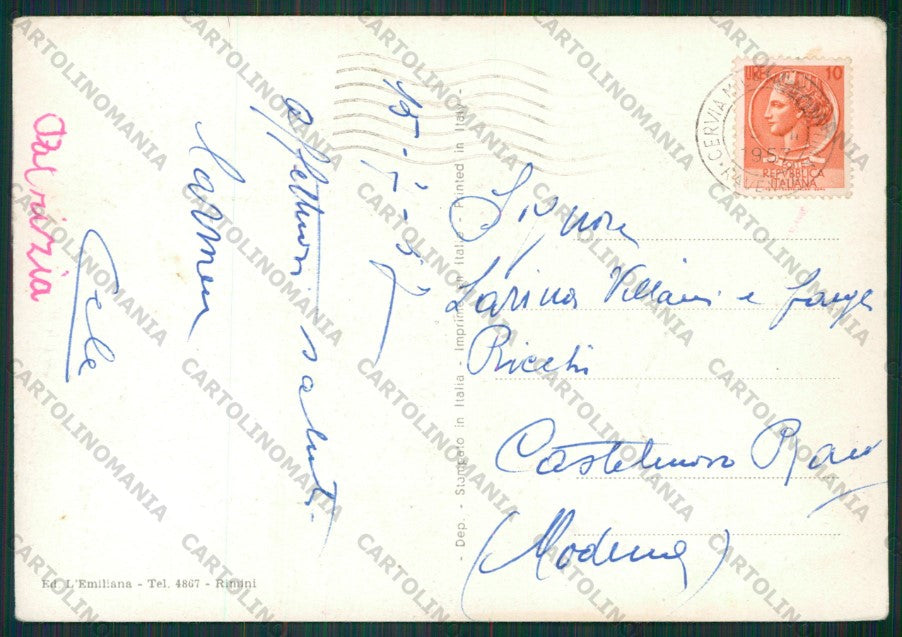 15-7-57
affettuosi saluti
Carmen
Patrizia
Signora
Larina Villani e famiglia
Ricchi
Castelnuovo Rang
(Modena)
LIRE 10
REPUBBLICA
ITALIANA
CERVIA
1957
- Dep. - Stampato in Italia - Imprimé en Italie - Printed in Italy -
Ed. L'Emiliana - Tel. 4867 - Rimini
CARTOLINOMANIA